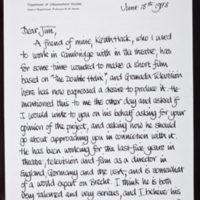 Department of Educational Studies
June 18th 1978
Dear Jim,
A friend of mine, Keith Hack, who I used
to work in Cambridge with in the theatre, has
for some time wanted to make a short film
based on "The Double Helix", and Granada Television
have now expressed a desire to produce it. He
mentioned this to me the other day and asked if
I would write to you on his behalf asking for your
opinion of the project, and asking how he should
go about approaching you in connection with it.
He has been working for the last five years in
theatre, television and film as a director in
England, Germany and the USA, and is somewhat
of a world expert on Brecht. I think he is both
very talented and very serious, and I believe his